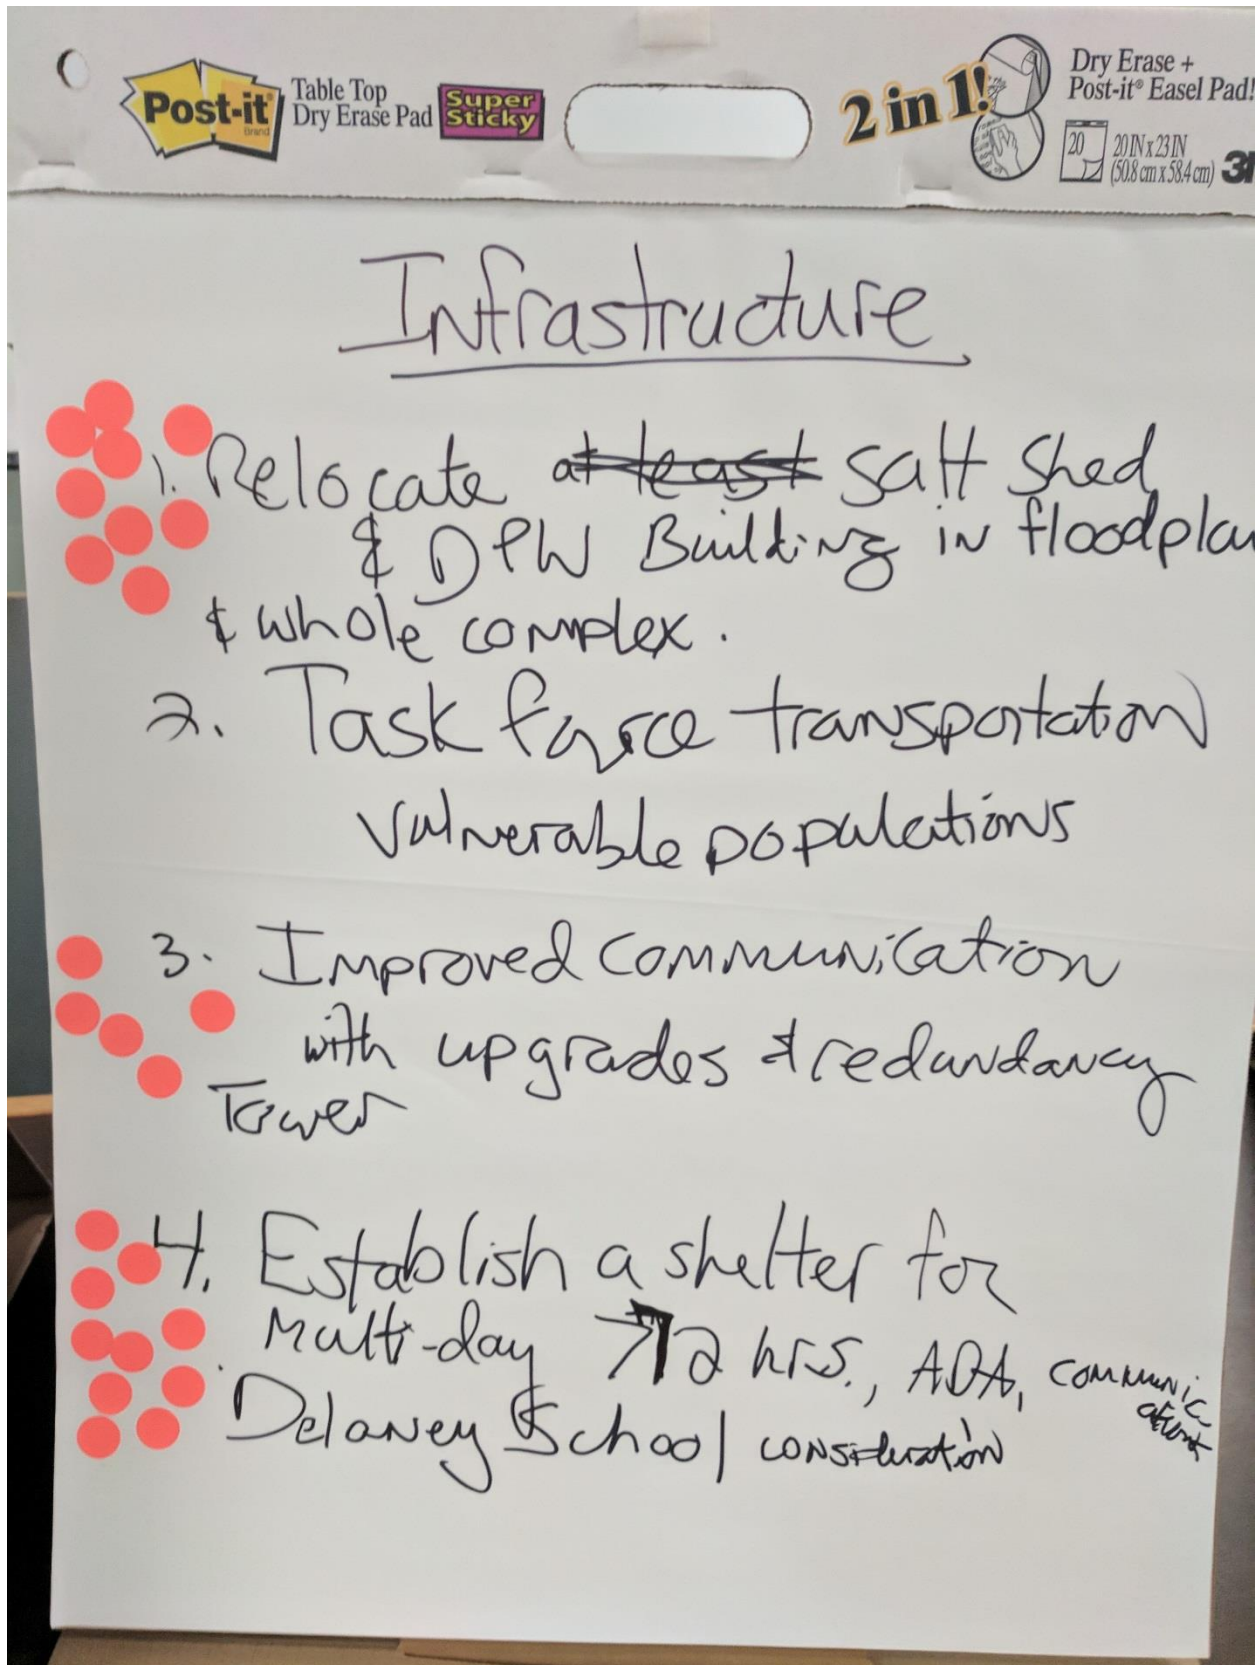 Post-it
Brand
Table Top
Dry Erase Pad
Super
Sticky
2 in 1!
Dry Erase +
Post-it® Easel Pad!
20
20 IN x 23 IN
(50.8 cm x 58.4 cm)
Infrastructure
1. Relocate at least salt shed
& DPW Building in floodplan
& whole complex.
2. Task force transportation
vulnerable populations
3. Improved communication
with upgrades & redundancy
Tower
4. Establish a shelter for
Multi-day >72 hrs., ADA, communic
Delaney School consideration